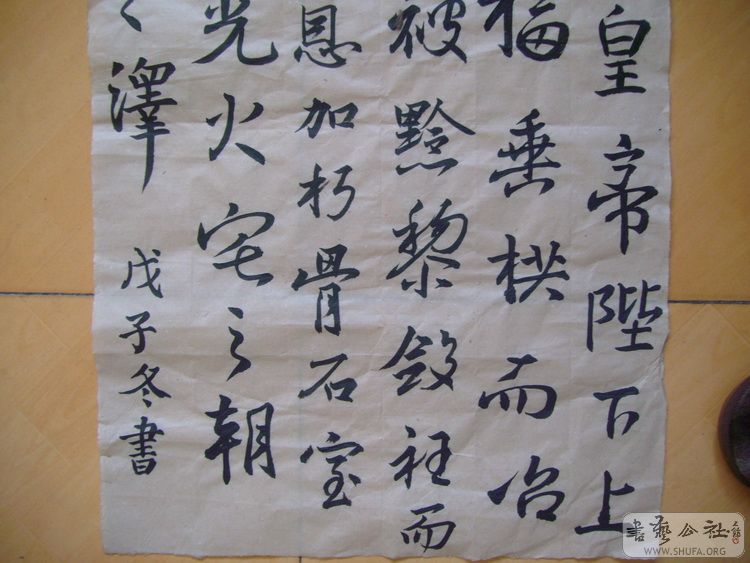 皇帝陛下上
福垂拱而治
被黔黎斂衽而
恩加朽骨石室
光火宅之朝
澤
戊子冬書
書藝公社
WWW.SHUFA.ORG